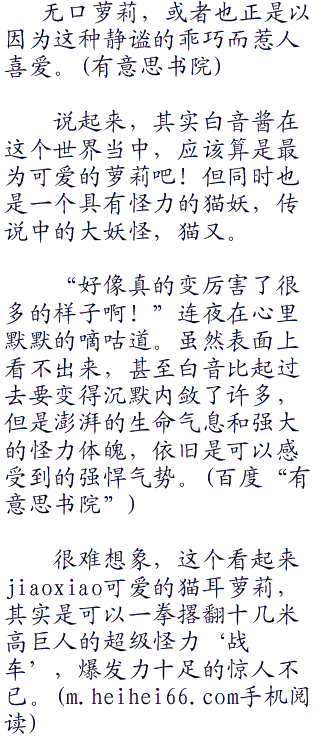 无口萝莉，或者也正是以
因为这种静谧的乖巧而惹人
喜爱。(有意思书院)
说起来，其实白音酱在
这个世界当中，应该算是最
为可爱的萝莉吧！但同时也
是一个具有怪力的猫妖，传
说中的大妖怪，猫又。
“好像真的变厉害了很
多的样子啊！”连夜在心里
默默的嘀咕道。虽然表面上
看不出来，甚至白音比起过
去要变得沉默内敛了许多，
但是澎湃的生命气息和强大
的怪力体魄，依旧是可以感
受到的强悍气势。(百度“有
意思书院”)
很难想象，这个看起来
jiaoxiao可爱的猫耳萝莉，
其实是可以一拳撂翻十几米
高巨人的超级怪力‘战
车’，爆发力十足的惊人不
已。(m.heihei66.com手机阅
读)